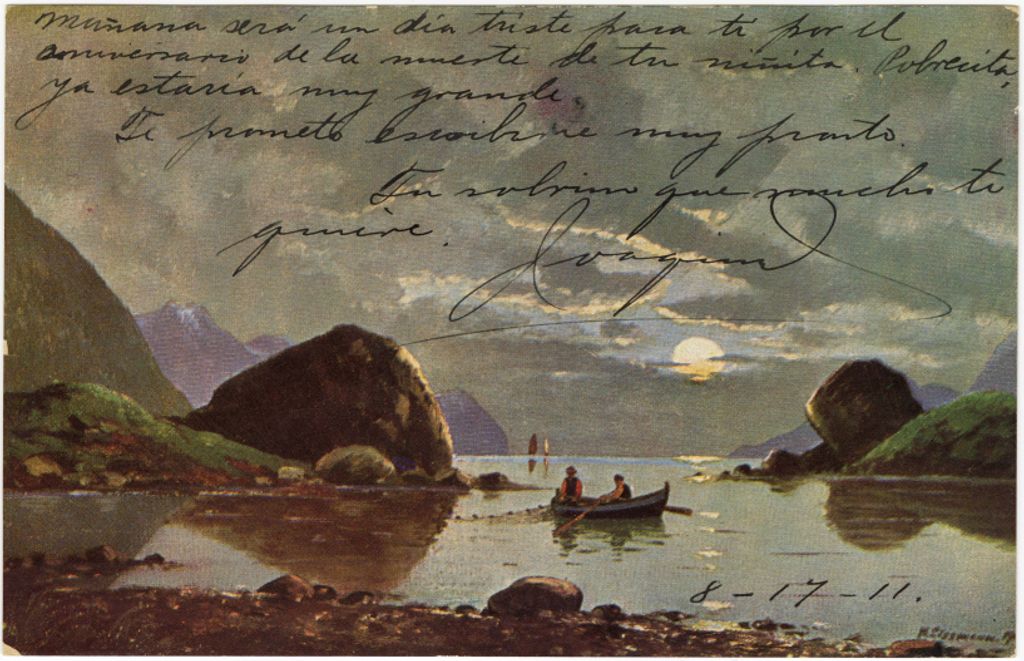 Mañana será un día triste para ti por el
aniversario de la muerte de tu niñita. Pobrecita,
ya estaría muy grande.
Te prometo escribirte muy pronto.
Tu sobrino que mucho te
quiere.
Joaquin
8-17-11.